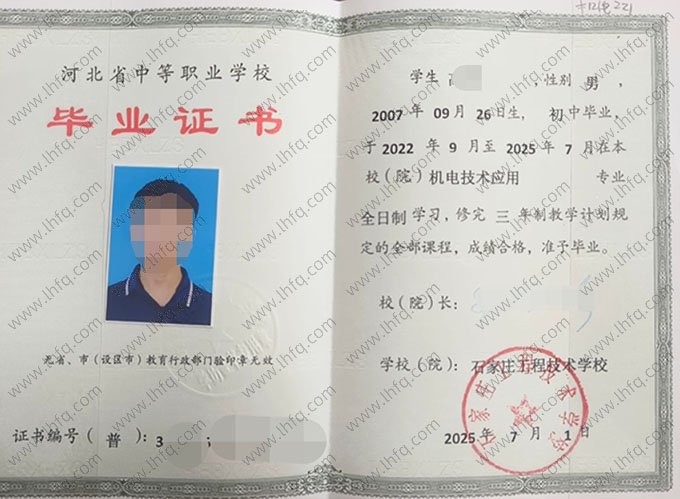 河北省中等职业学校
毕业证书
无省、市（设区市）教育行政部门验印章无效
证书编号（普）：3
学生
，性别 男 ，
2007年 09月 26日生， 初中毕业，
于 2022 年 9 月 至 2025 年 7 月在本
校（院）机电技术应用 专业
全日制 学习，修完 三 年制教学计划规
定的全部课程，成绩合格，准予毕业。
校（院）长：
学校（院）：石家庄工程技术学校
2025 年 7 月 1 日
石家庄工程技术学校
www.lhfq.com